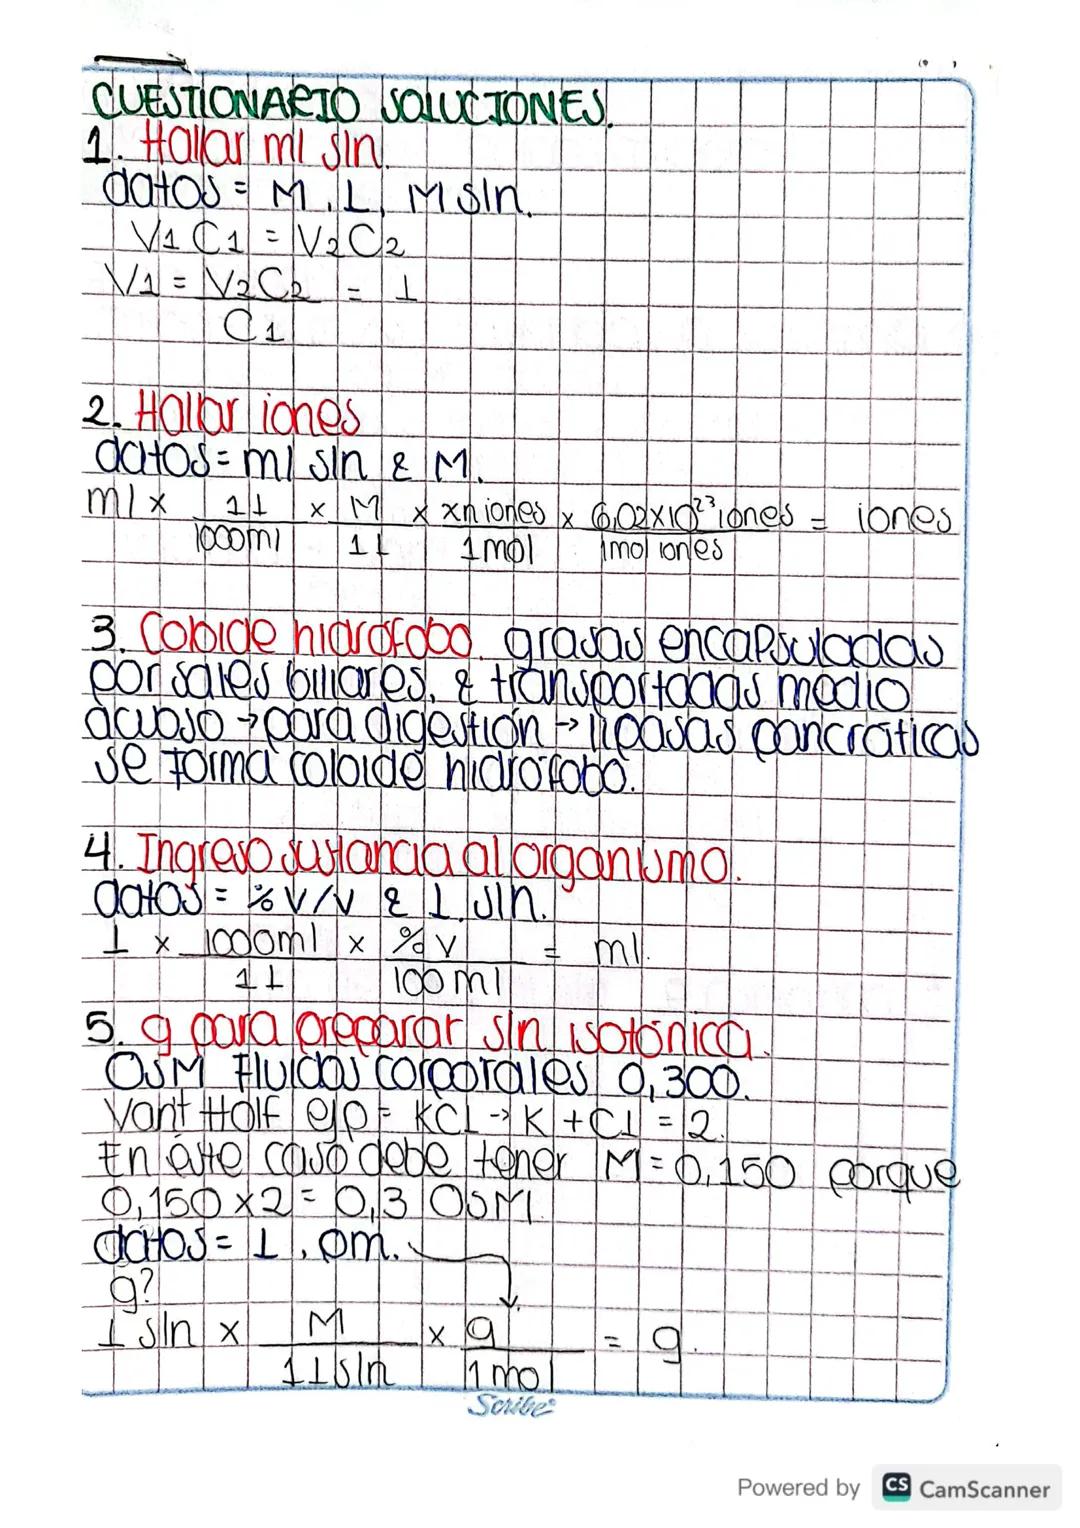 CUESTIONARIO SOLUCIONES.
1. Hallar ml sln.
datos = M, L, M sln.
V1 C1 = V2 C2
V1 = V2 C2 = L
C1
2. Hallar iones
datos = ml sln & M.
ml x 1L x M x xn iones x 6,02x10²³ iones = iones
1000ml 1L 1mol 1mol iones
3. Coloide hidrófobo. grasas encapsuladas
por sales biliares, & transportadas medio
acuoso → para digestión → lipasas pancráticas
se forma coloide hidrófobo.
4. Ingreso sustancia al organismo.
datos = % V/V & L. sln.
L x 1000ml x % V = ml.
1L 100 ml
5. g para preparar sln isotónica.
OsM Fluidos corporales 0,300.
Vant Hoff ejp = KCL → K + CL = 2.
En éste caso debe tener M = 0,150 porque
0,150 x 2 = 0,3 OsM.
datos = L, pm.
g?
L sln x M x g = g.
1L sln 1mol
Scribe
Powered by CS CamScanner